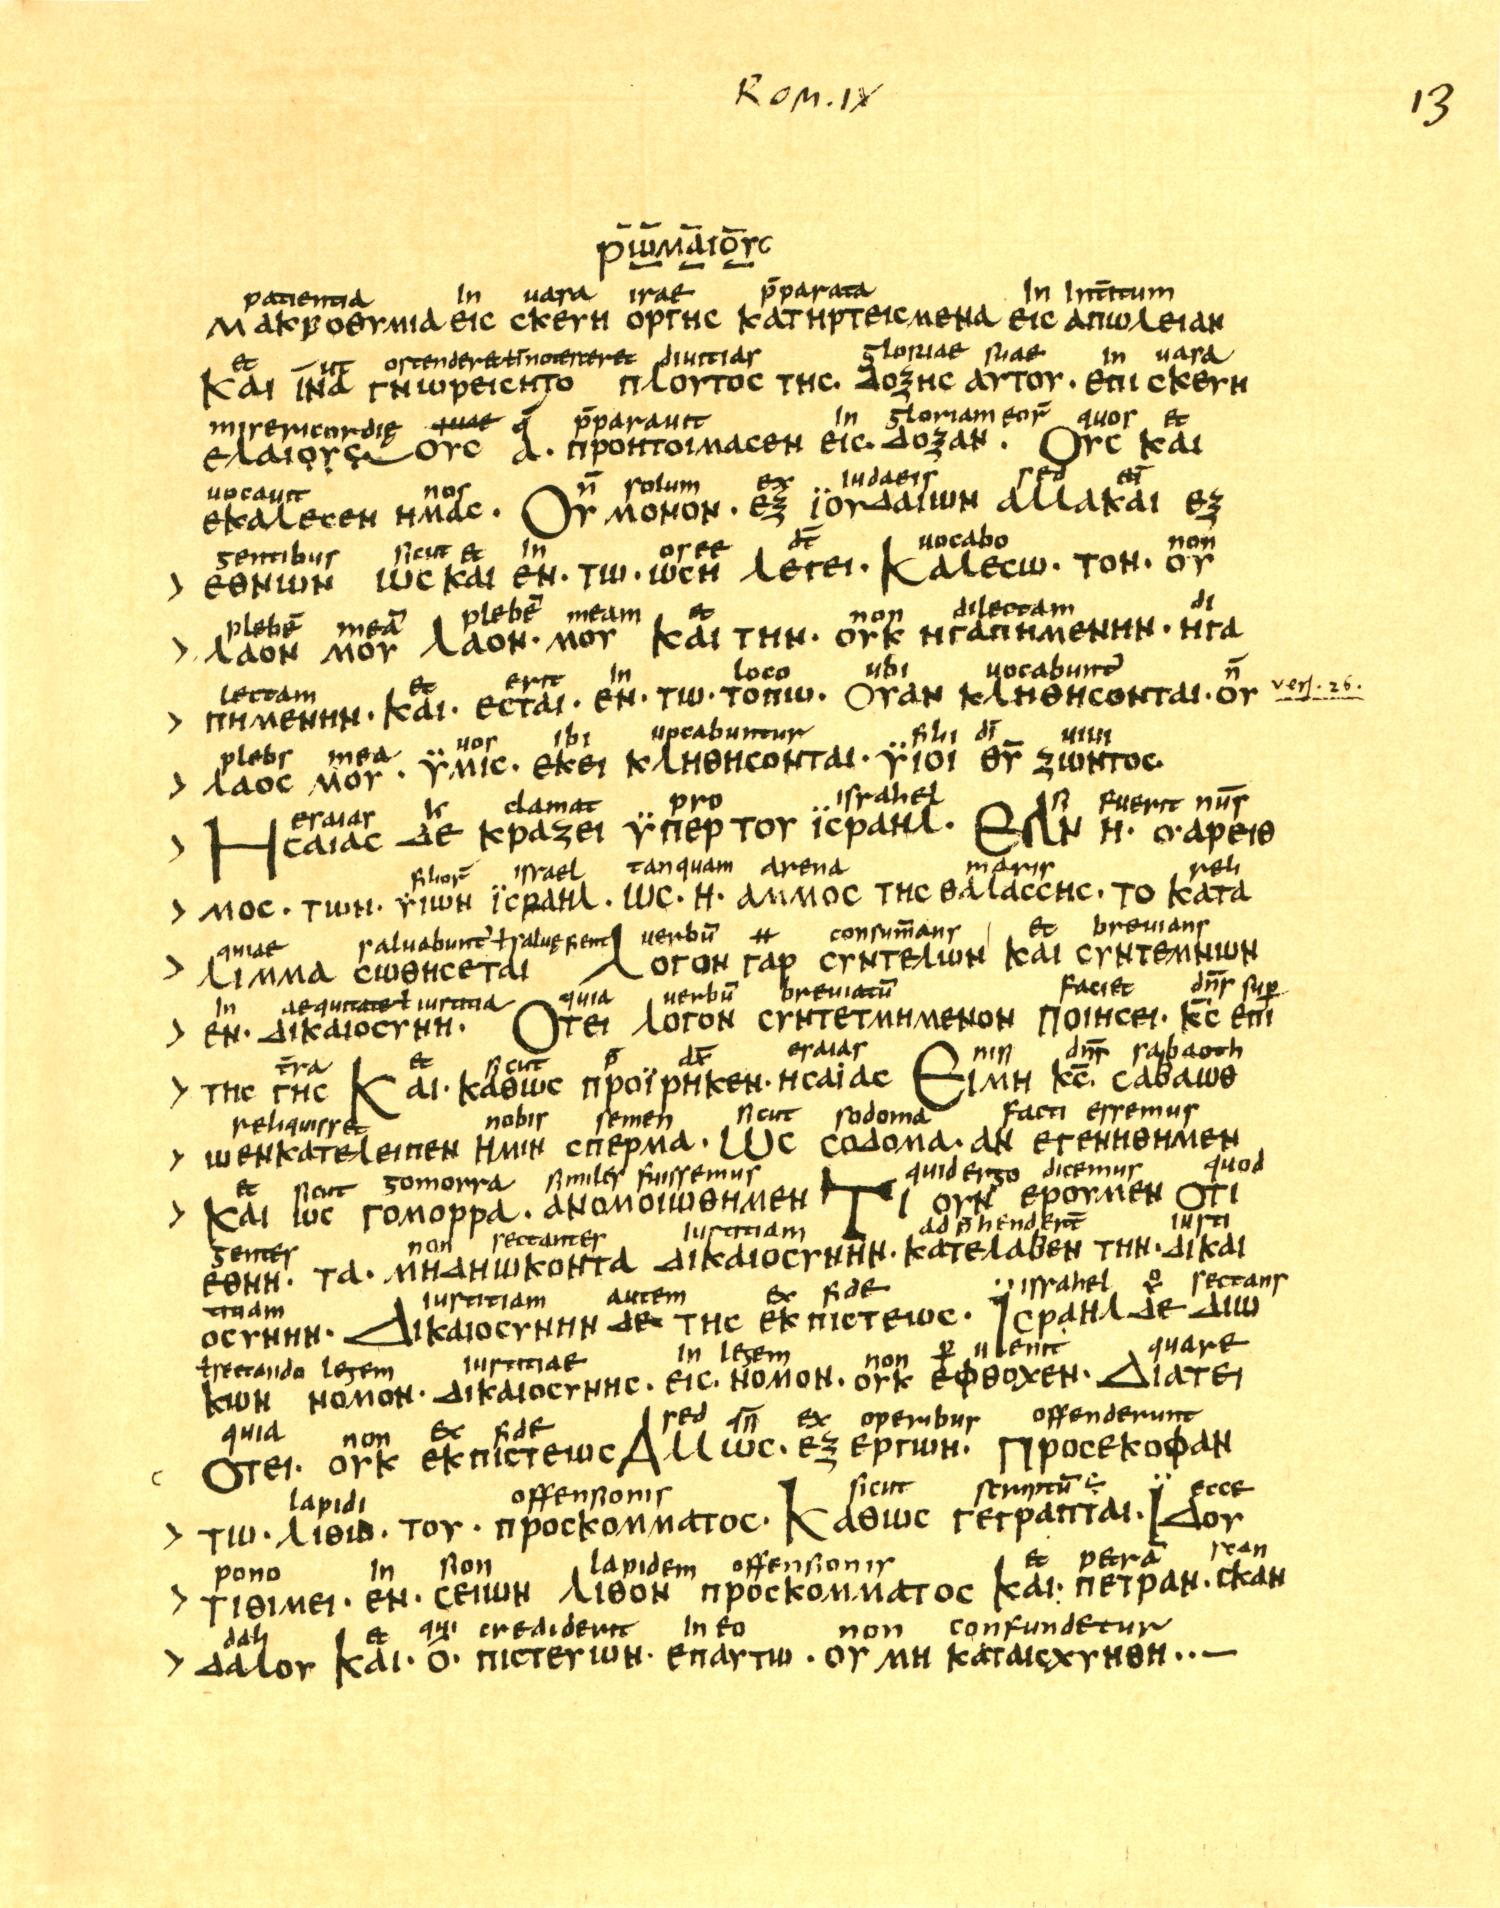 Rom. IX
13
ρωμαιους
patientia In uasa irae p̄parata In Interitum
μακροθυμια εις σκευη οργης κατηρτεισμενα εις απωλειαν
et ut ostenderet ł notesceret diuitias gloriae suae in uasa
και ϊνα γνωρεισητο πλουτος της. δοξης αυτου. επι σκευη
misericordię quae q̄ p̄parauit in gloriam eor̄ quos et
ελαιους ους α. προητοιμασεν εις. δοξαν. Ους και
uocauit nos n̄ solum ex iudaeis sed et
εκαλεσεν ημας. Ου μονον. εξ ϊουδαιων αλλακαι εξ
gentibus sicut et in osee dc̄ uocabo non
> εθνιων ωσκαι εν. τω. ωση λεγει. Καλεσω. τον. ου
plebē meā plebē meam et non dilectam di
> λαον μου λαον. μου και την. ουκ ηγαπημενην. ηγα
lectam et erit in loco ubi uocabunt̄ n̄
> πημενην. και. εσται. εν. τω. τοπω. Ουαν κληθησονται. ου vers. 26.
plebs mea uos ibi uocabuntur filii dī uiui
> λαος μου. ϋμις. εκει κληθησονται. ϋιοι θ̄ῡ ζωντος.
esaias clamat pro israhel si fuerit nūs
> Ησαιας δε κραζει ϋπερ του ϊσραηλ. Εαν η. οαρειθ
filior̄ israel tanquam arena maris reli
> μος. των. ϋιων ϊσραηλ. ως. η. αμμος της θαλασσης. το κατα
quiae saluabunt̄ ł saluę fient uerbū consum̄ans et breuians
> λιμμα σωθησεται Λογον γαρ συντελιων και συντεμνιων
in aequitate ł iustitia quia uerbū breuiatū faciet dn̄s sup̄
> εν. δικαιοσυνη. Οτει λογον συντετμημενον ποιησει. κ̄ς̄ επι
t̄ra et sicut dx̄ esaias nisi dn̄s sabaoth
> της γης Και. καθως προϊρηκεν. ησαϊας Ειμη κ̄ς̄. σαβαωθ
reliquisset nobis semen sicut sodoma facti essemus
> ωενκατελειπεν ημιν σπερμα. Ως σοδομα. αν εγενηθημεν
et sicut gomorra similes fuissemus quid ergo dicemus quod
> και ως γομορρα. ανομοιωθημεν Τι ουν ερουμεν οτι
gentes non sectantes iustitiam adp̄hendert̄ iusti
εθνη. τα. μηδηωκοντα δικαιοσυνην. κατελαβεν την. δικαι
tiam iustitiam autem ex fide israhel sectans
οσυνην. Δικαιοσυνην δε της εκ πιστεως. Ϊσραηλ δε διω
ł sectando legem iustitiae in legem non p̄uenit quare
κων νομον. δικαιοσυνης. εις. νομον. ουκ εφθοχεν. Διατει
quia non ex fide sed q̄n̄ ex operibus offenderunt
c Οτει. ουκ εκπιστεως Αλλ ως. εξ εργων. Προσεκοφαν
lapidi offensionis sicut scriptū ecce
> τω. λιθω. του. προσκομματος. Καθως γεγραπται. Ϊδου
pono in sion lapidem offensionis et petrā scan
> τιθιμει. εν. σειων λιθον προσκομματος και. πετραν. σκαν
dali et qui crediderit in eo non confundetur
> δαλου και. ο. πιστευων. επαυτω. ου μη καταισχυνθη..—